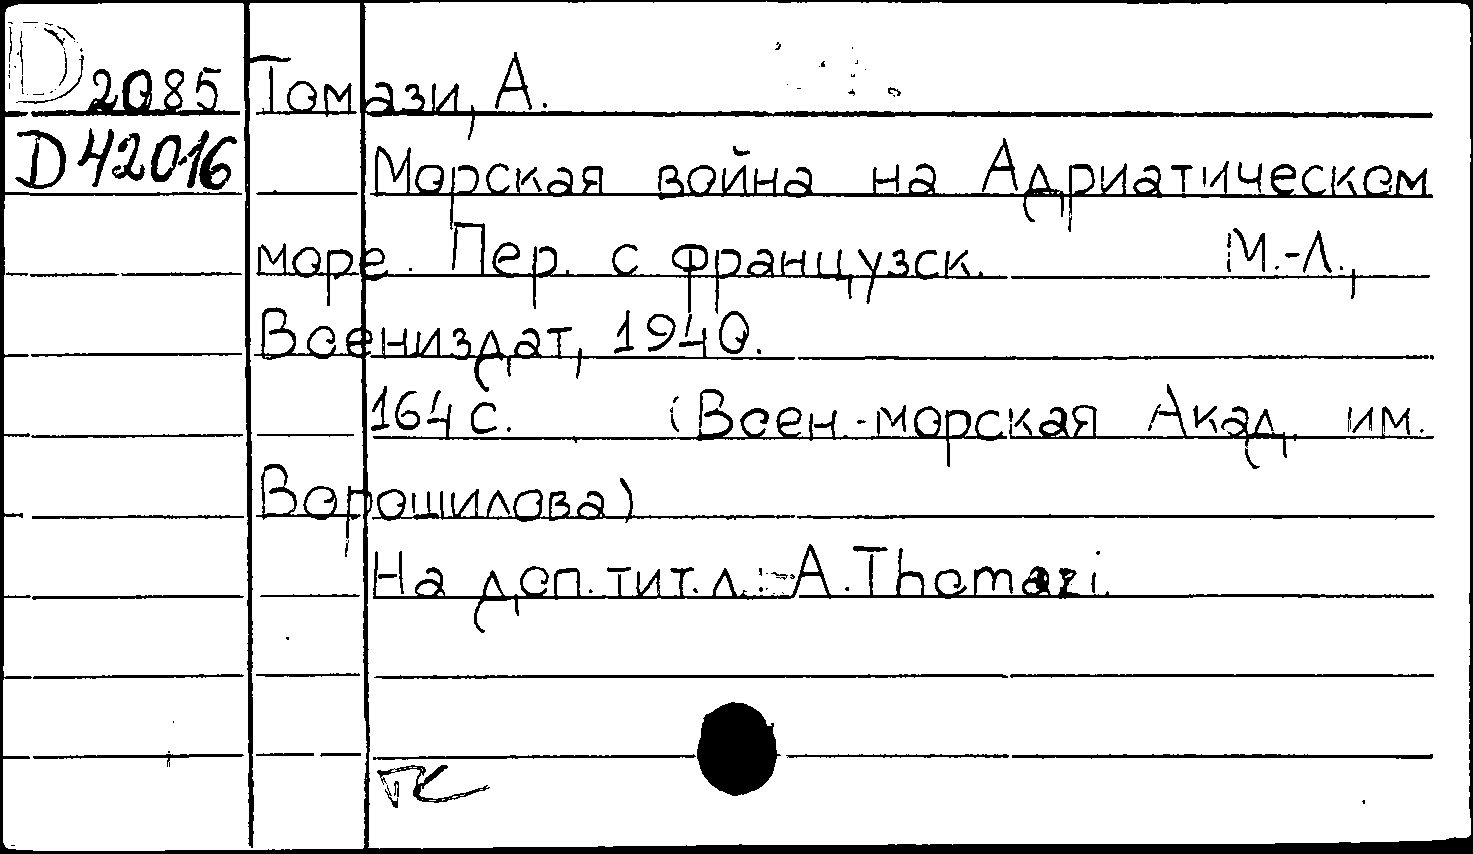 D 2085 Томази, А.
D 42016 Морская война на Адриатическом
море. Пер. с французск. М.-Л.,
Воениздат, 1940.
164 с. (Воен.-морская Акад. им.
Ворошилова)
На доп. тит. л.: A. Thomazi.